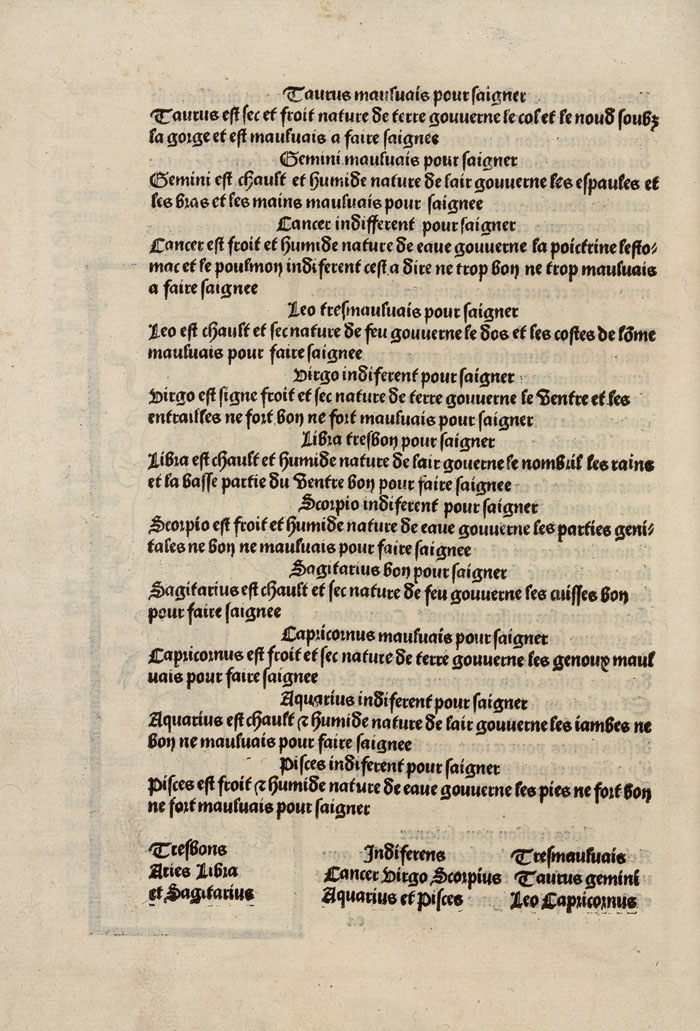 Taurus mauluais pour saigner
Taurus est sec et froit nature de terre gouuerne le col et le noud soubz
la gorge et est mauluais a faire saignee
Gemini mauluais pour saigner
Gemini est chault et humide nature de lair gouuerne les espaules et
les bras et les mains mauluais pour saignee
Cancer indifferent pour saigner
Cancer est froit et humide nature de eaue gouuerne la poictrine lesto⸗
mac et le poulmon indiferent cest a dire ne trop bon ne trop mauluais
a faire saignee
Leo tresmauluais pour saigner
Leo est chault et sec nature de feu gouuerne le dos et les costes de lõme
mauluais pour faire saignee
Virgo indiferent pour saigner
Virgo est signe froit et sec nature de terre gouuerne le Ventre et les
entrailles ne fort bon ne fort mauluais pour saigner
Libra tresbon pour saigner
Libra est chault et humide nature de lair gouerne le nombril les rains
et la basse partie du Ventre bon pour faire saignee
Scorpio indiferent pour saigner
Scorpio est froit et humide nature de eaue gouuerne les parties geni⸗
tales ne bon ne mauluais pour faire saignee
Sagitarius bon pour saigner
Sagitarius est chault et sec nature de feu gouuerne les cuisses bon
pour faire saignee
Capricornus mauluais pour saigner
Capricornus est froit et sec nature de terre gouuerne les genoux maul
uais pour faire saignee
Aquarius indiferent pour saigner
Aquarius est chault ⁊ humide nature de lair gouuerne les iambes ne
bon ne mauluais pour faire saignee
Pisces indiferent pour saigner
Pisces est froit ⁊ humide nature de eaue gouuerne les pies ne fort bon
ne fort mauluais pour saigner
Tresbons
Aries Libra
et Sagitarius
Indiferens
Cancer Virgo Scorpius
Aquarius et Pisces
Tresmauluais
Taurus gemini
Leo Capricornus